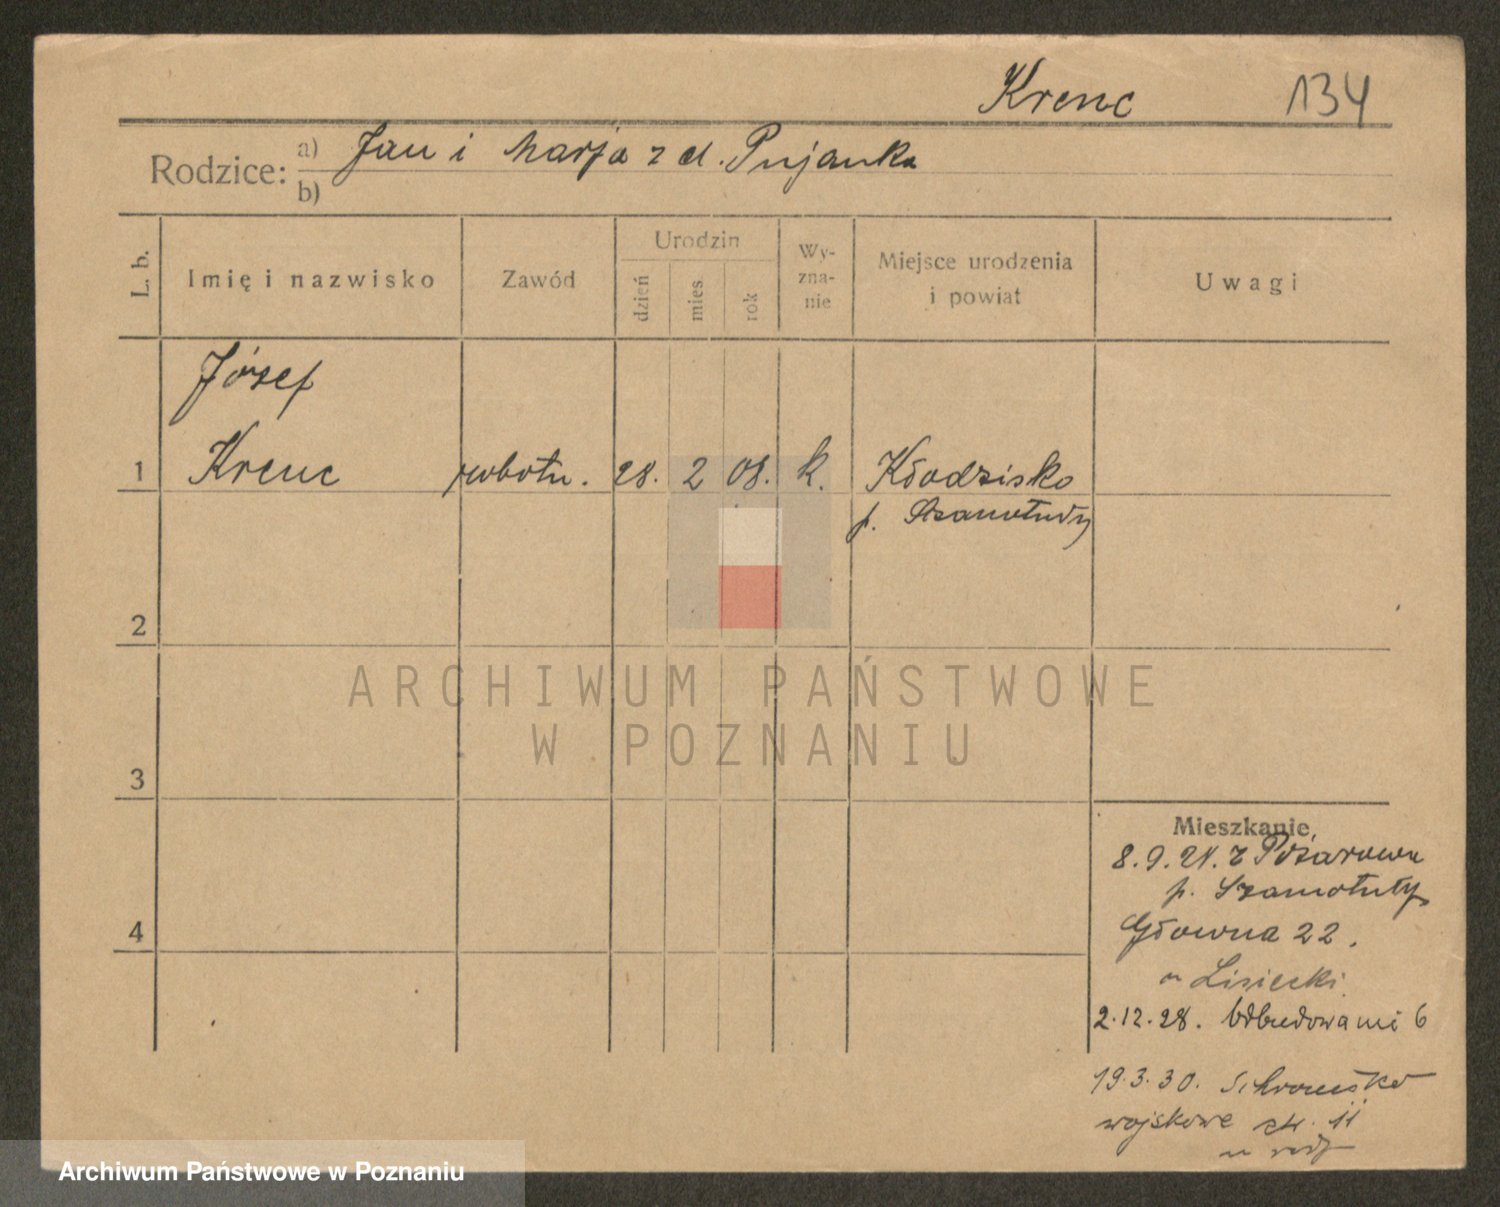 Krenc 134
Rodzice: a) Jan i Marja z d. Pujanka
b)
L. b.
Imię i nazwisko
Zawód
Urodzin
dzień
mies.
rok
Wy-
zna-
nie
Miejsce urodzenia
i powiat
Uwagi
Józef
1 Krenc robotn. 28. 2 08. k. Kłodzisko
p. Szamotuły
2
3
4
Mieszkanie
8.9.28. z Pożarowa
p. Szamotuły
Główna 22.
u Lisiecki
2.12.28. 6
19.3.30. Schronisko
wojskowe 11
ARCHIWUM PAŃSTWOWE
W POZNANIU
Archiwum Państwowe w Poznaniu